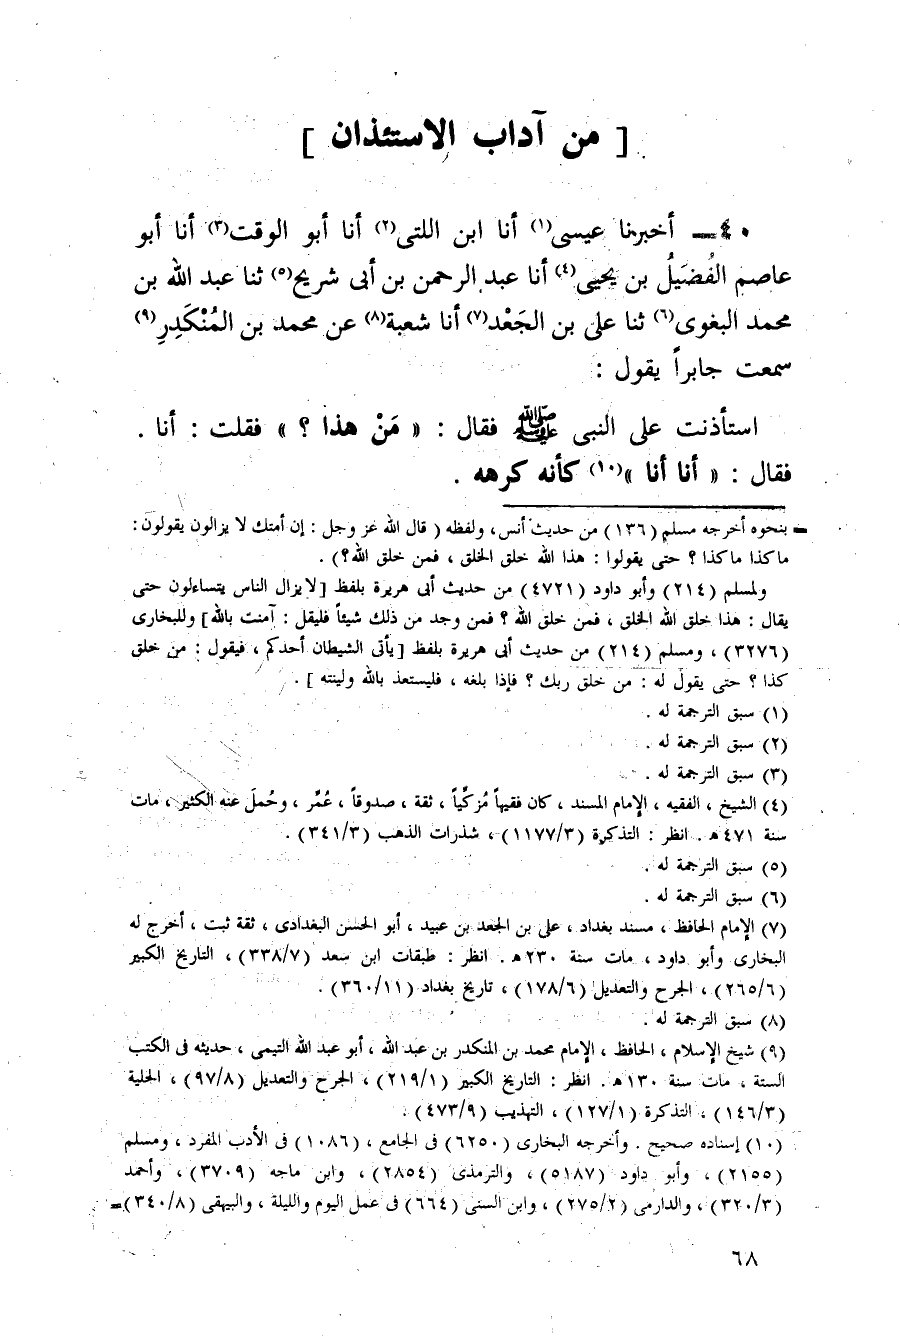 [ من آداب الاستئذان ]
٤٠ــ أخبرنا عيسى(١) أنا ابن اللتى(٢) أنا أبو الوقت(٣) أنا أبو
عاصم الفُضَيلُ بن يحيى(٤) أنا عبد الرحمن بن أبى شريح(٥) ثنا عبد الله بن
محمد البغوى(٦) ثنا على بن الجَعْد(٧) أنا شعبة(٨) عن محمد بن المُنْكَدِرِ(٩)
سمعت جابراً يقول :
استأذنت على النبى ﷺ فقال : « مَنْ هذا ؟ » فقلت : أنا .
فقال : « أنا أنا »(١٠) كأنه كرهه .
= بنحوه أخرجه مسلم (١٣٦) من حديث أنس، ولفظه ( قال الله عز وجل : إن أمتك لا يزالون يقولون:
ما كذا ما كذا ؟ حتى يقولوا : هذا الله خلق الخلق ، فمن خلق الله؟) .
ولمسلم (٢١٤) وأبو داود (٤٧٢١) من حديث أبى هريرة بلفظ [لا يزال الناس يتساءلون حتى
يقال : هذا خلق الله الخلق ، فمن خلق الله ؟ فمن وجد من ذلك شيئاً فليقل : آمنت بالله] وللبخارى
(٣٢٧٦) ، ومسلم (٢١٤) من حديث أبى هريرة بلفظ [يأتى الشيطان أحدكم ، فيقول : من خلق
كذا ؟ حتى يقول له : من خلق ربك ؟ فإذا بلغه ، فليستعذ بالله ولينته ] .
(١) سبق الترجمة له .
(٢) سبق الترجمة له .
(٣) سبق الترجمة له .
(٤) الشيخ ، الفقيه ، الإمام المسند ، كان فقيهاً مُزكِّياً ، ثقة ، صدوقاً ، عُمِّر ، وحُملَ عنه الكثير ، مات
سنة ٤٧١ هـ . انظر : التذكرة (١١٧٧/٣) ، شذرات الذهب (٣٤١/٣) .
(٥) سبق الترجمة له .
(٦) سبق الترجمة له .
(٧) الإمام الحافظ ، مسند بغداد ، على بن الجعد بن عبيد ، أبو الحسن البغدادى ، ثقة ثبت ، أخرج له
البخارى وأبو داود ، مات سنة ٢٣٠ هـ . انظر : طبقات ابن سعد (٣٣٨/٧) ، التاريخ الكبير
(٢٦٥/٦) ، الجرح والتعديل (١٧٨/٦) ، تاريخ بغداد (٣٦٠/١١) .
(٨) سبق الترجمة له .
(٩) شيخ الإسلام ، الحافظ ، الإمام محمد بن المنكدر بن عبد الله ، أبو عبد الله التيمى ، حديثه فى الكتب
الستة ، مات سنة ١٣٠ هـ . انظر : التاريخ الكبير (٢١٩/١) ، الجرح والتعديل (٩٧/٨) ، الحلية
(١٤٦/٣) ، التذكرة (١٢٧/١) ، التهذيب (٤٧٣/٩) .
(١٠) إسناده صحيح . وأخرجه البخارى (٦٢٥٠) فى الجامع ، (١٠٨٦) فى الأدب المفرد ، ومسلم
(٢١٥٥) ، وأبو داود (٥١٨٧) ، والترمذى (٢٨٥٤) ، وابن ماجه (٣٧٠٩) ، وأحمد
(٣٢٠/٣) ، والدارمى (٢٧٥/٢) ، وابن السنى (٦٦٤) فى عمل اليوم والليلة ، والبيهقى (٣٤٠/٨) =
٦٨